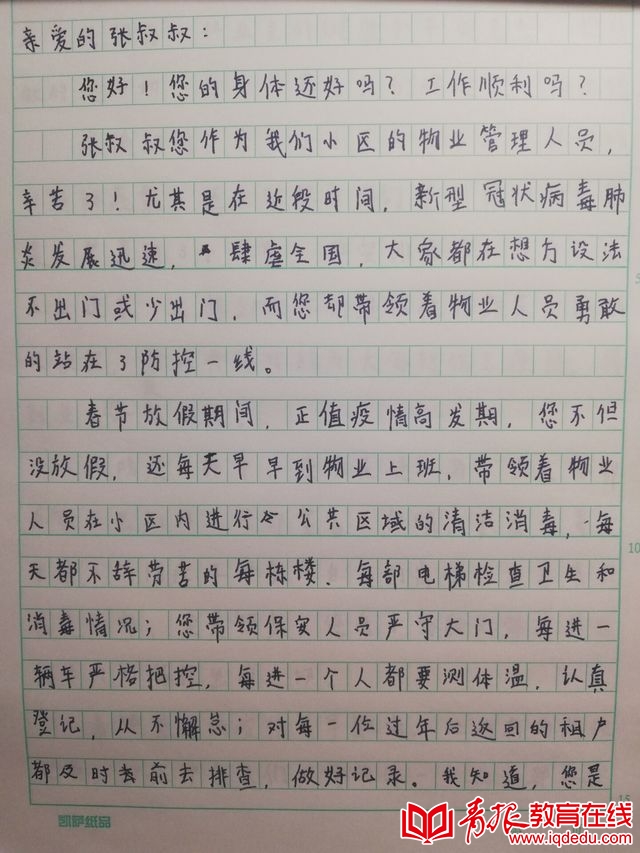 亲爱的张叔叔：
您好！您的身体还好吗？工作顺利吗？
张叔叔您作为我们小区的物业管理人员，
辛苦了！尤其是在近段时间，新型冠状病毒肺
炎发展迅速，肆虐全国，大家都在想方设法
不出门或少出门，而您却带领着物业人员勇敢
的站在了防控一线。
春节放假期间，正值疫情高发期，您不但
没放假，还每天早早到物业上班，带领着物业
人员在小区内进行公共区域的清洁消毒，每
天都不辞劳苦的每栋楼、每部电梯检查卫生和
消毒情况；您带领保安人员严守大门，每进一
辆车严格把控，每进一个人都要测体温，认真
登记，从不懈怠；对每一位过年后返回的租户
都及时去前去排查，做好记录。我知道，您是
5
10
15
凯萨纸品
青报教育在线
www.iqdedu.com